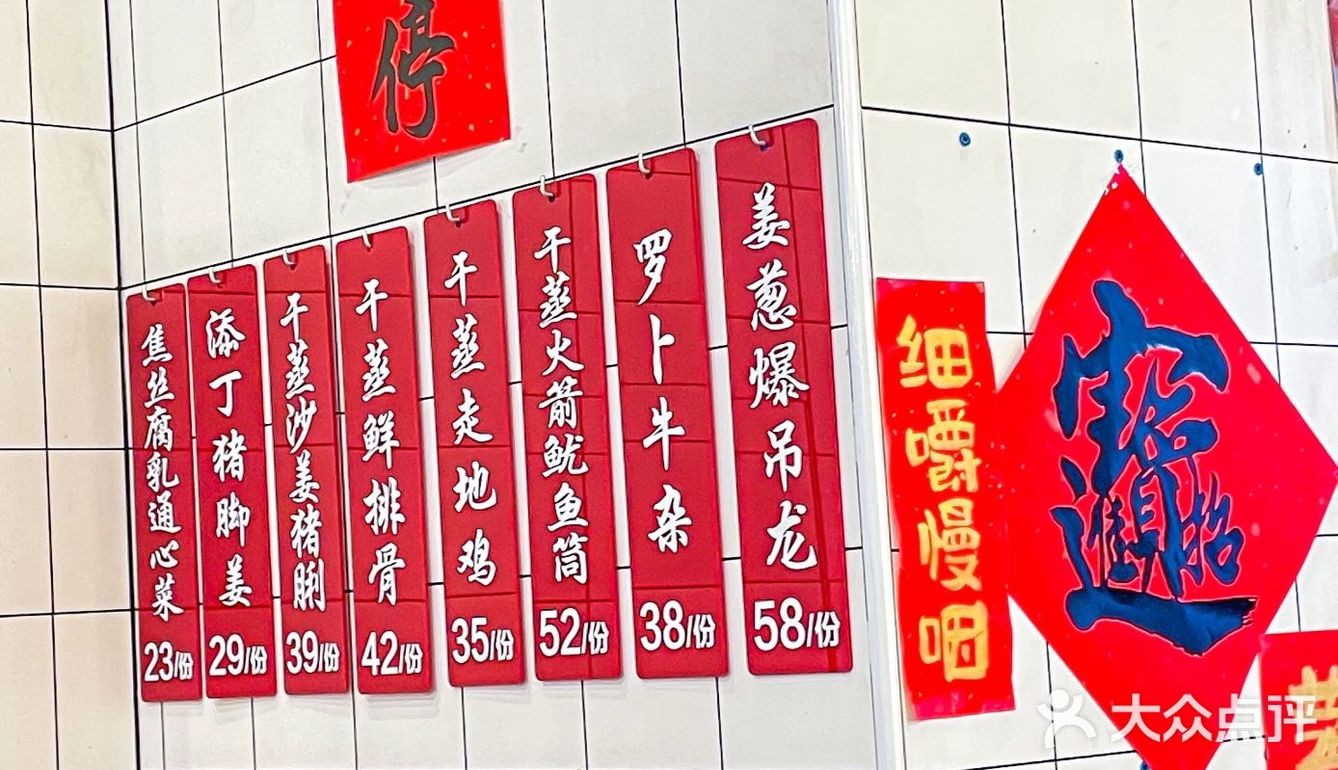 停
焦丝腐乳通心菜
23/份
添丁猪脚姜
29/份
干蒸沙姜猪脷
39/份
干蒸鲜排骨
42/份
干蒸走地鸡
35/份
干蒸火箭鱿鱼筒
52/份
罗卜牛杂
38/份
姜葱爆吊龙
58/份
细嚼慢咽
招财进宝
大众点评